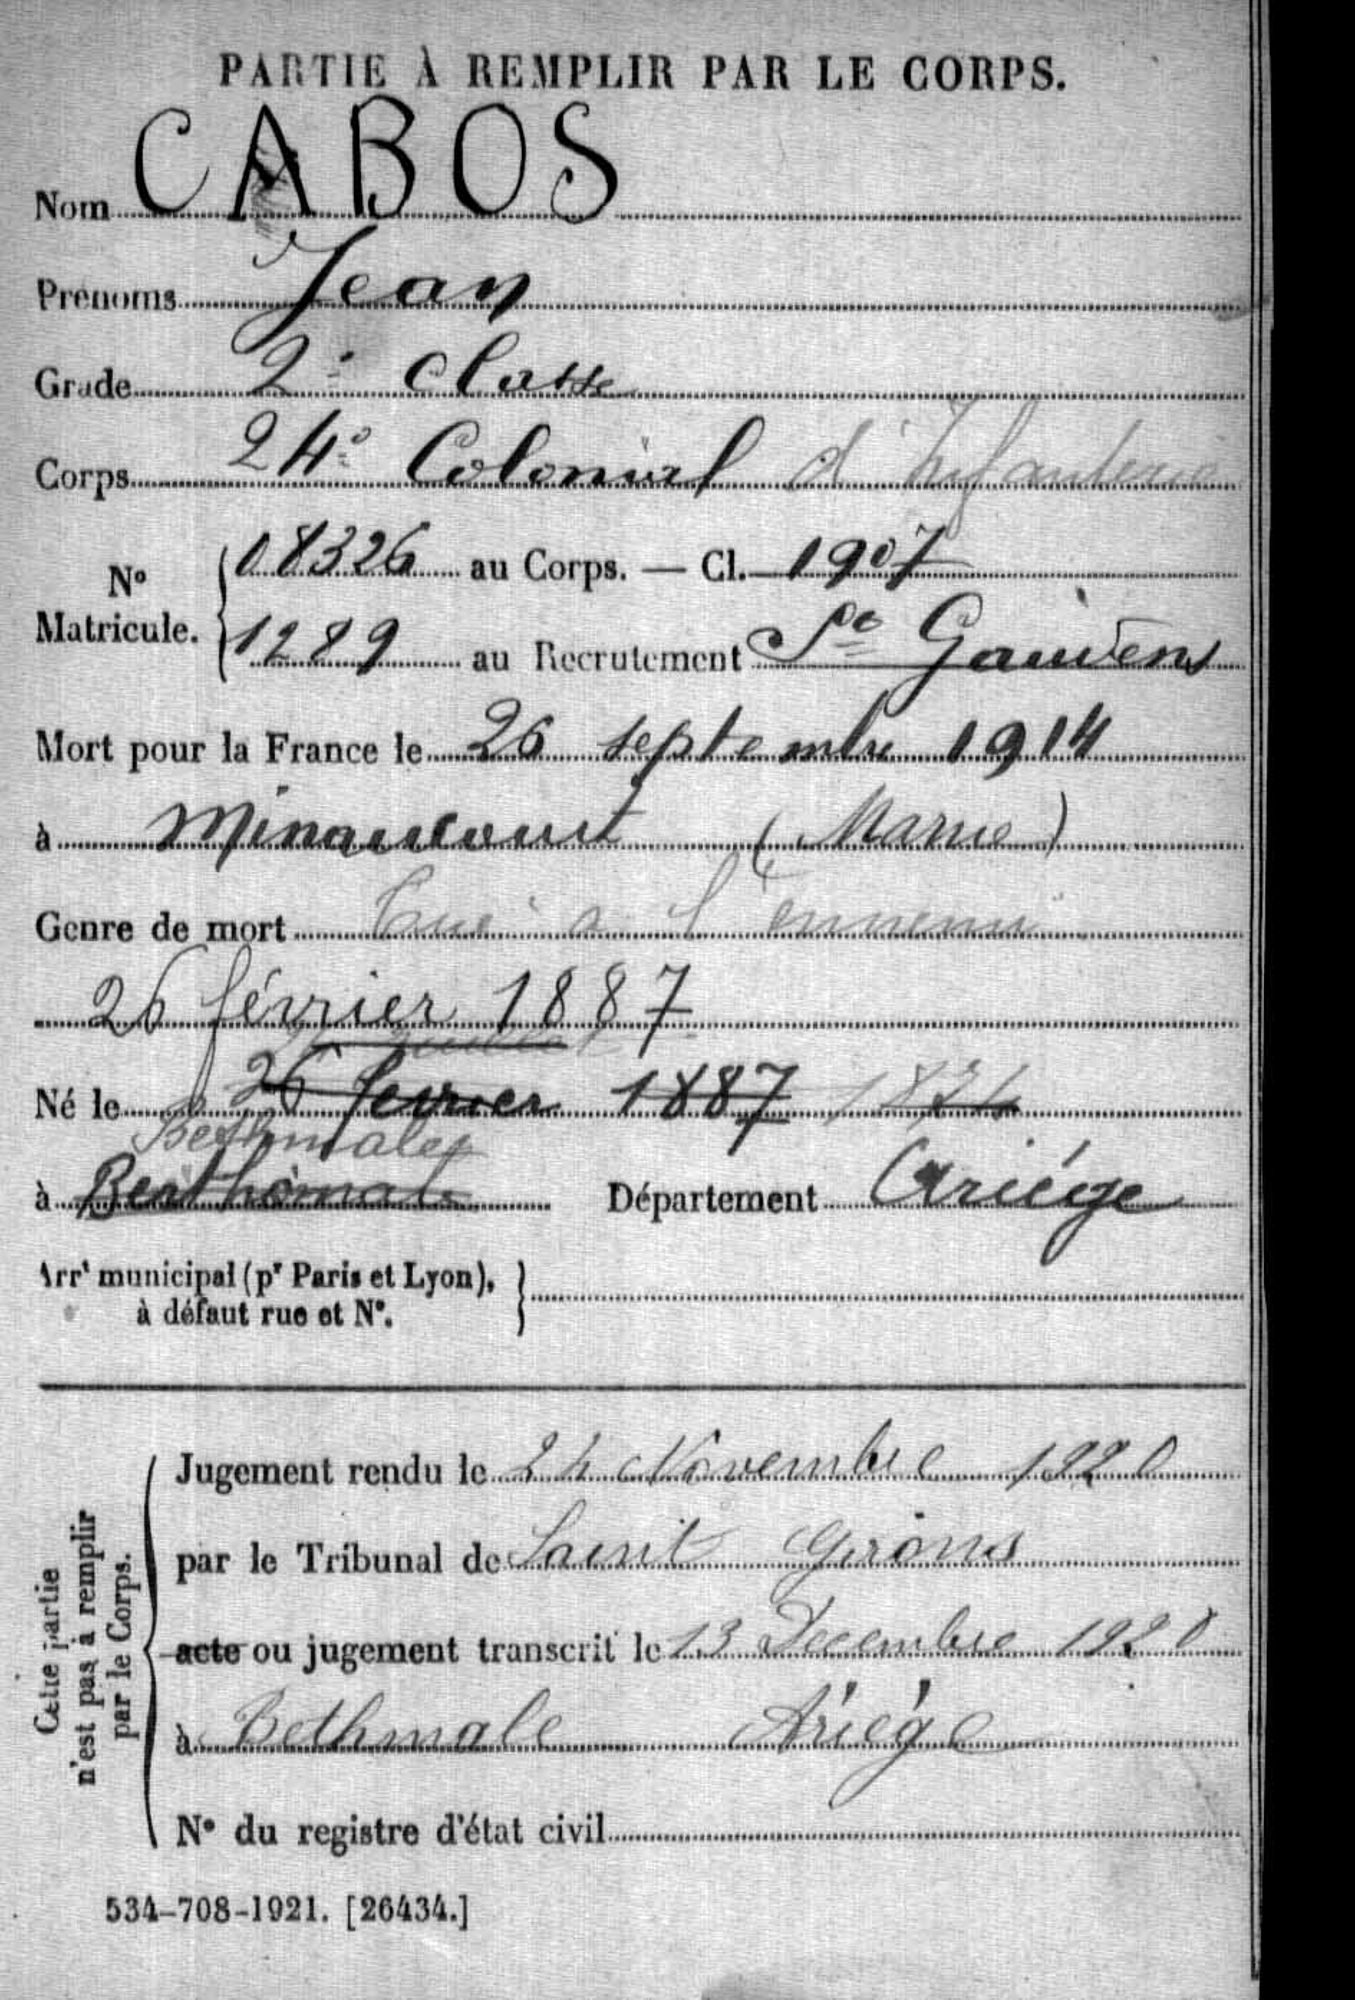 PARTIE À REMPLIR PAR LE CORPS.
Nom CABOS
Prénoms Jean
Grade 2e Classe
Corps 24e Colonial d'Infanterie
No Matricule. { 08326 au Corps. — Cl. 1907
1289 au Recrutement St Gaudens
Mort pour la France le 26 septembre 1914
à Minaucourt (Marne)
Genre de mort Tué à l'ennemi
26 février 1887
Né le 26 fevrier 1887
Bethmale
à Berthomale Département Ariége
Arrt municipal (pr Paris et Lyon),
à défaut rue et No. }
Cette partie
n'est pas à remplir
par le Corps.
Jugement rendu le 24 Novembre 1920
par le Tribunal de Saint Girons
acte ou jugement transcrit le 13 Decembre 1920
à Bethmale Ariége
No du registre d'état civil
534-708-1921. [26434.]